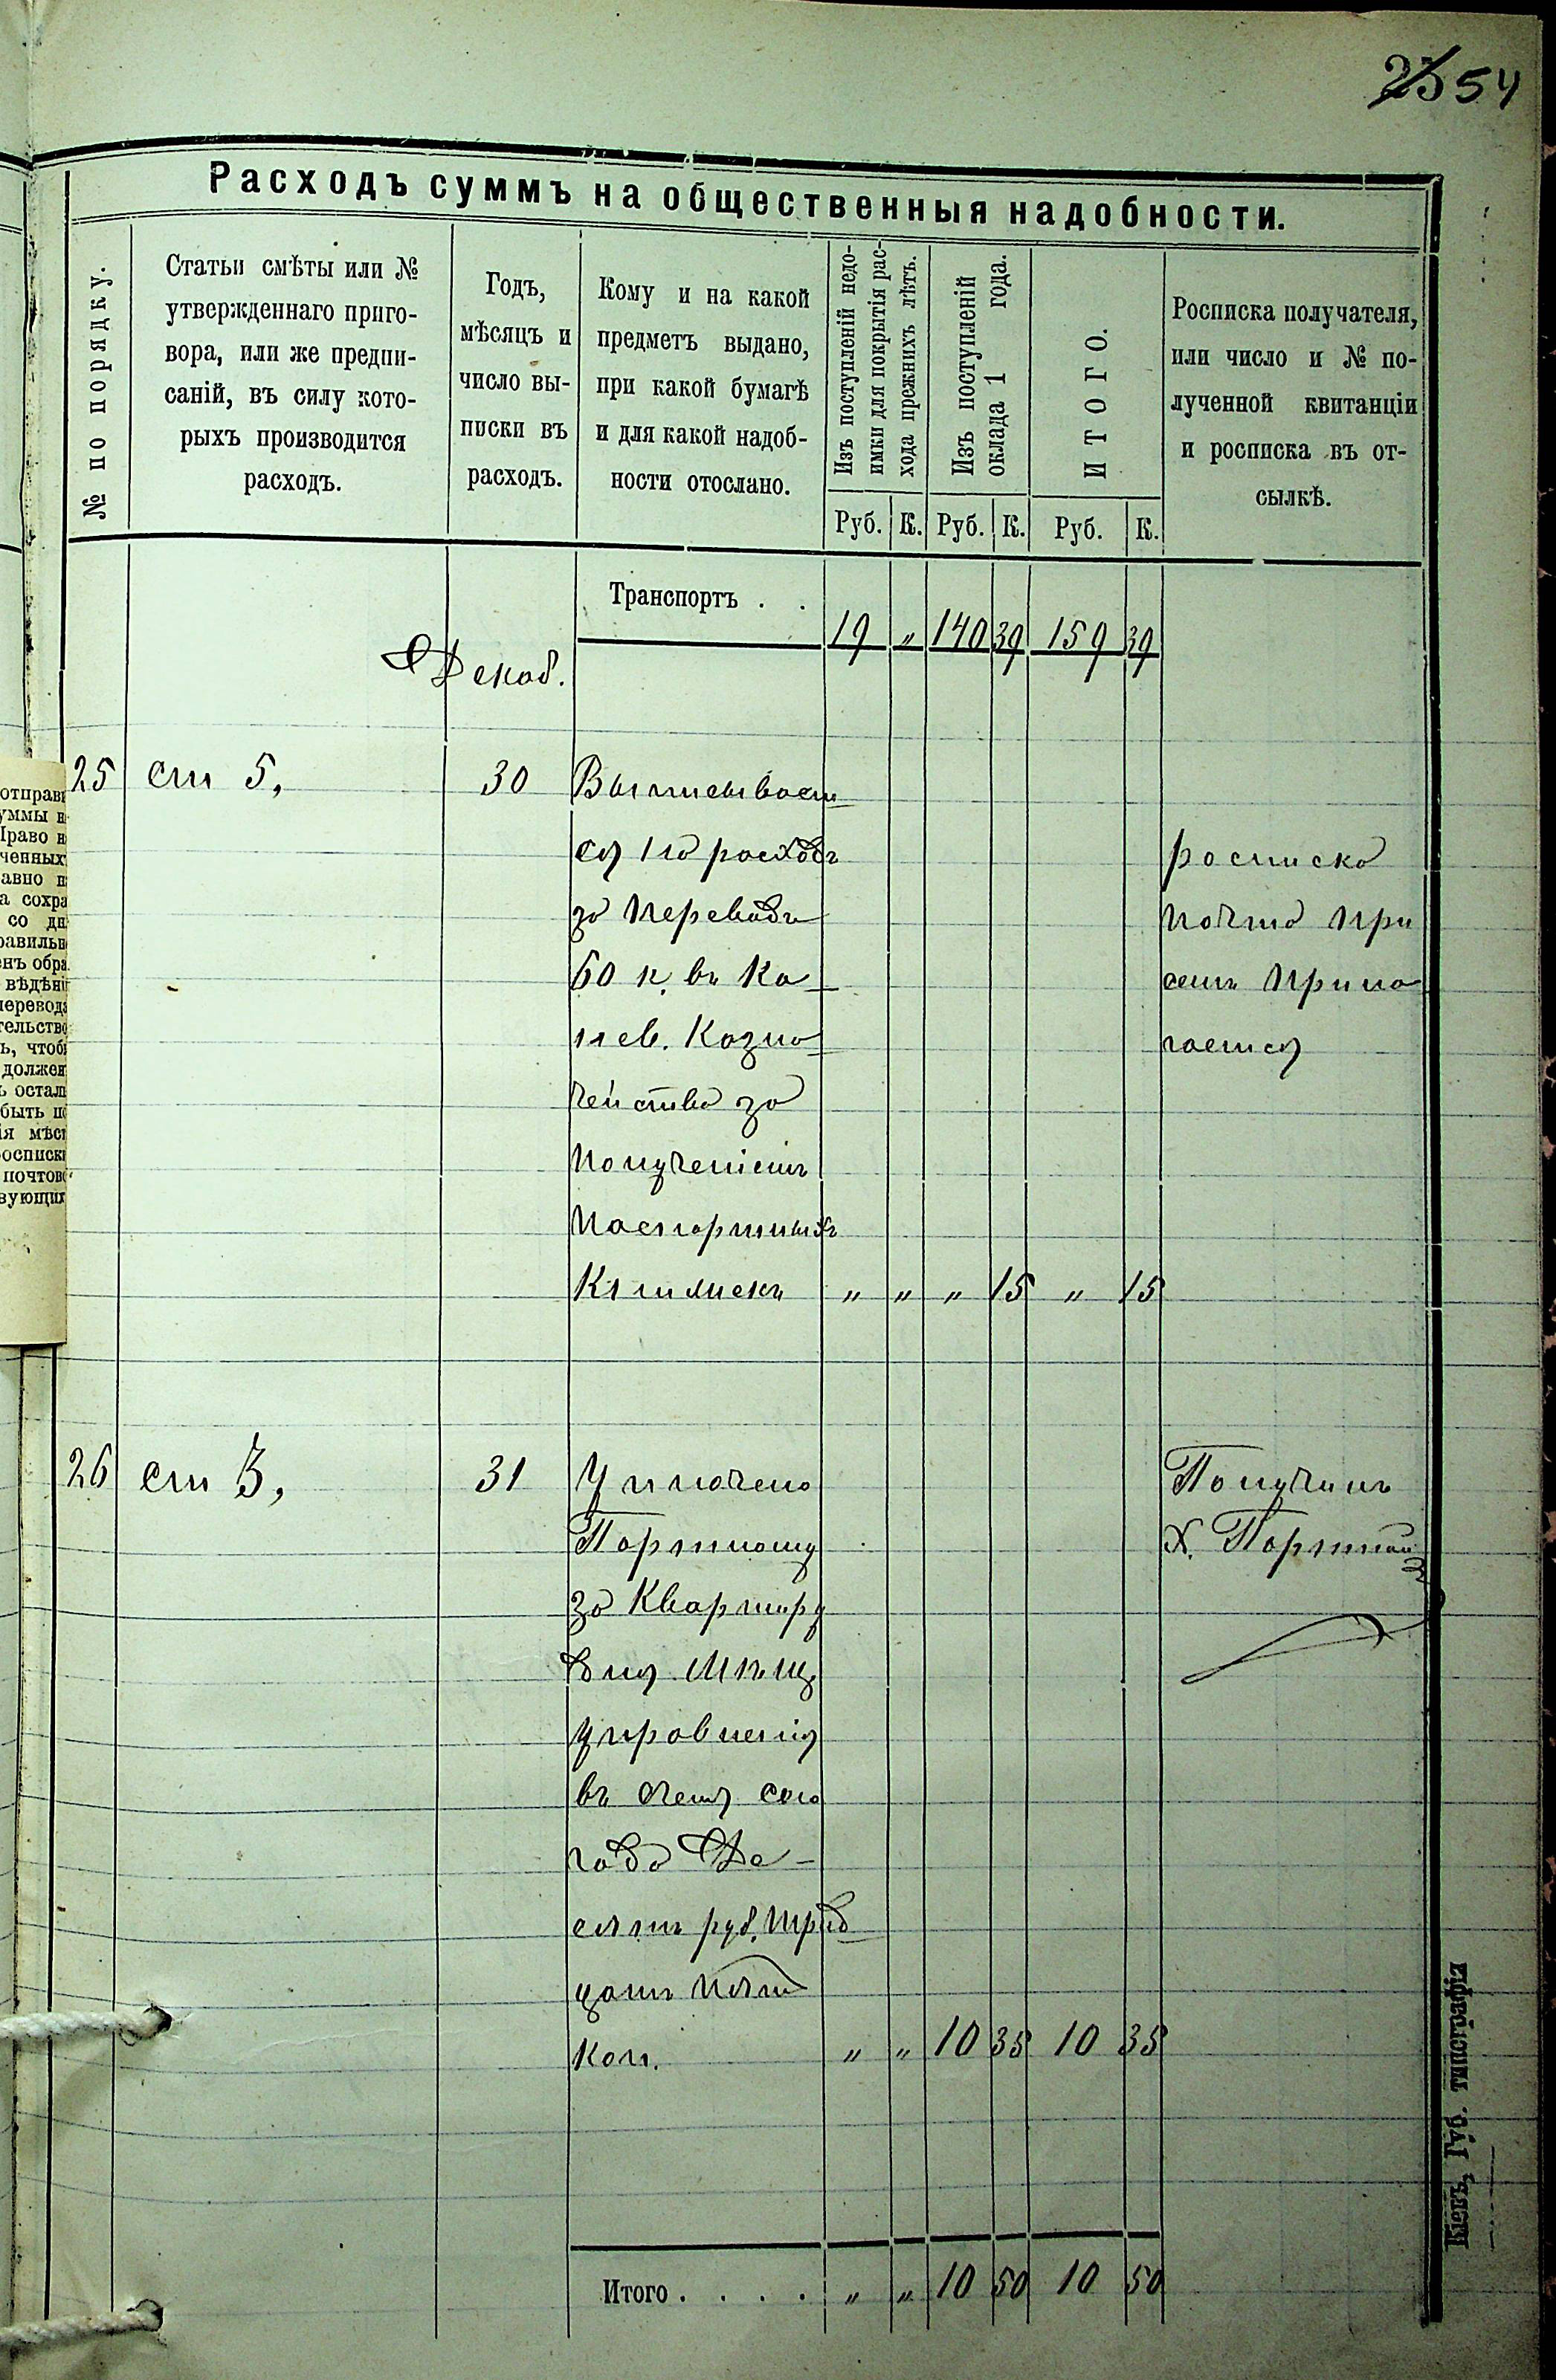 54
Расходъ суммъ на общественныя надобности.
№ по порядку.
Статьи смѣты или №
утвержденнаго приго-
вора, или же предпи-
саній, въ силу кото-
рыхъ производится
расходъ.
Годъ,
мѣсяцъ и
число вы-
писки въ
расходъ.
Кому и на какой
предметъ выдано,
при какой бумагѣ
и для какой надоб-
ности отослано.
Изъ поступленій недо-
имки для покрытія рас-
хода прежнихъ лѣтъ.
Изъ поступленій
оклада 1 года.
ИТОГО.
Росписка получателя,
или число и № по-
лученной квитанціи
и росписка въ от-
сылкѣ.
Руб. К. Руб. К. Руб. К.
Транспортъ . .
19 „ 140 39 159 39
Декаб.
25 ст 5, 30 Выписывает
ся по расходъ
за переводъ
60 к. въ Ка
нев. Казна
чейство за
полученіемъ
паспортныхъ
Книжекъ „ „ „ 15 „ 15
росписка
почта при
семъ прила
гается
26 ст 3, 31 Уплачено
Портному
за Квартиру
для Мѣщ
управленія
въ счетъ сего
года Де-
сять руб. трид
цать пять
Коп. „ „ 10 35 10 35
Получилъ
Х. Портной
Итого . . . . „ „ 10 50 10 50
Кіевъ, Губ. типографія
отправ
уммы н
Право н
ченных
авно п
а сохра
со дн
равильн
енъ обра
вѣдѣні
перевода
тельство
ь, чтоб
должен
ъ остал
быть п
ія мѣст
росписк
почтов
вующих